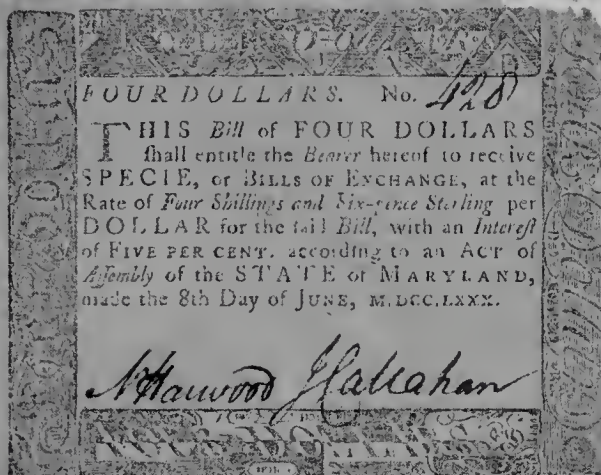 FOUR DOLLARS. No. 428
THIS Bill of FOUR DOLLARS
ſhall entitle the Bearer hereof to receive
SPECIE, or BILLS OF EXCHANGE, at the
Rate of Four Shillings and Six-pence Sterling per
DOLLAR for the ſaid Bill, with an Intereſt
of FIVE PER CENT. according to an ACT of
Aſſembly of the STATE of MARYLAND,
made the 8th Day of JUNE, M,DCC,LXXX.
N Harwood J Callahan